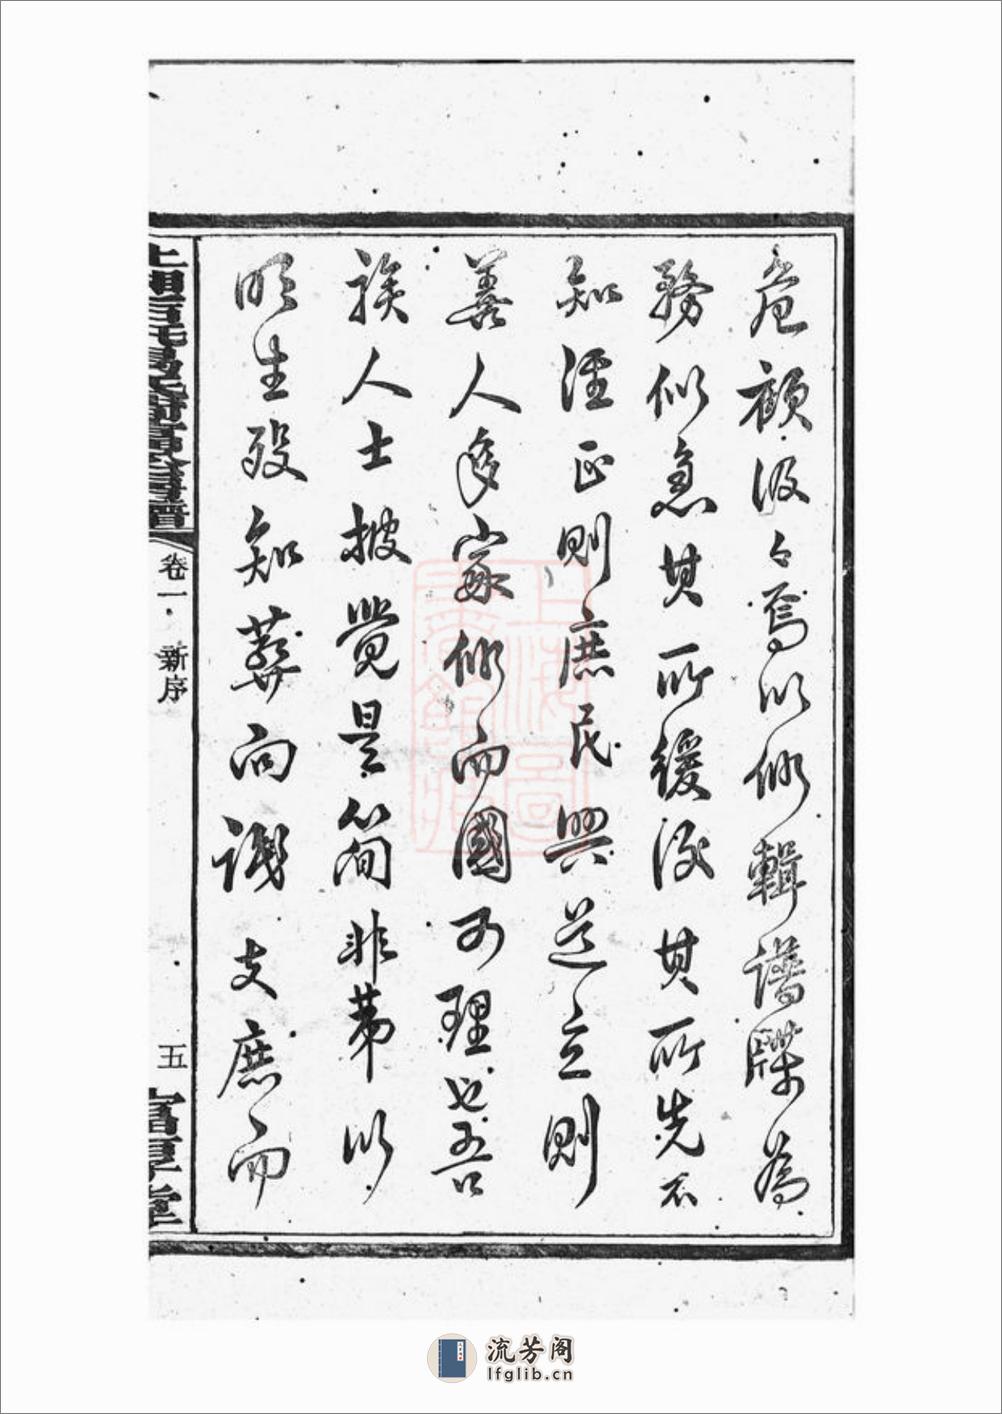 危顧汲々焉以修輯譜牒為
務似急其所緩後其所先不
知經正則庶民興道立則
善人多家修而國可理也吾
族人士披覽是簡非第以
明生歿知葬向識支庶而
卷一 新序
五 富厚堂
上海圖書館藏
流芳阁
lfglib.cn